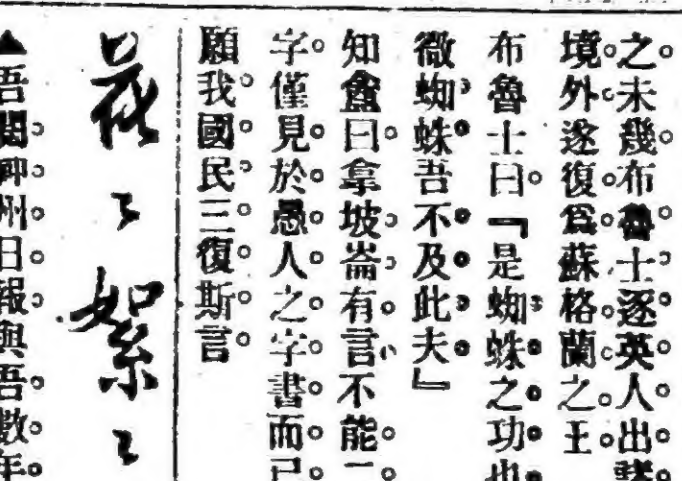 之未幾布魯士逐英人出諸
境外遂復爲蘇格蘭之王
布魯士曰『是蜘蛛之功也
微蜘蛛吾不及此夫』
知盦曰拿坡崙有言不能一
字僅見於愚人之字書而已
願我國民三復斯言
絮
▲吾聞神州日報與吾數年